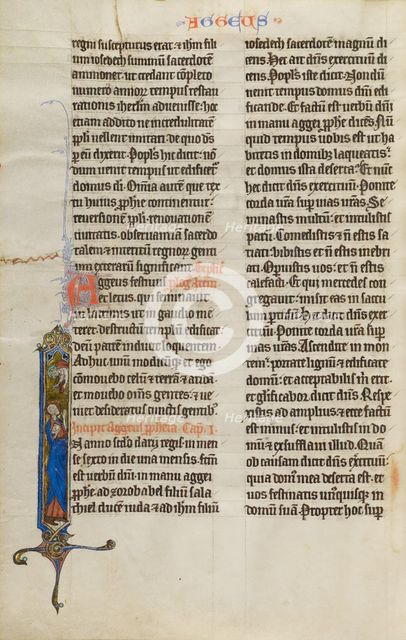 AGGEUS
regni suscepturus erat. ⁊ ih̄m filiū
ioseᵈech summū sacerdotem
ammonet. ut celant completo
numero annoꝝ tempus restau
rationis iherlm̄ aduenisse. hoc
etiam addito ne incredulitatē
ppl̄i uellent imitari. de quo dn̄s
dixerat. Popl̄us hic dicit. nō
dum uenit tempus ut edificet᷑
domus dn̄i. Om̄ia
huius ꝓphie continentiā.
reuersionem ppl̄i. renouationē
ciuitatis. obseruantiā sacerdo
talem. ⁊ interitū regnoꝝ genti
um exterarū significant.
Aggeus festiuus
⁊ letus. qui seminauit
in lacrimis ut in gaudio me
teret. destructū templū edificat.
deū patrē inducit loquentem.
Adhuc unū modicūꝗ; ⁊ ego
cōmouebo celū ⁊ terrā. ⁊ arida.
⁊ mouebo om̄s gentes. ⁊ ue
niet desideratus cunctis gentibꝫ.
Incipit Aggeus ꝓpheta. Cap̄. I.
In anno scdo darii regis. in men
se sexto in die una mensis. fcm̄
est uerbū dn̄i in manu aggei
ꝓphe. ad zorobabel filiū sala
thiel ducē iuda. ⁊ ad ih̄m filiū
iosedech sacerdotē magnū di
cens. Hec ait dn̄s exercituū di
cens. Popl̄s iste dicit. Nondū
uenit tempus domus dn̄i edi
ficande. Et factū est uerbū dn̄i
in manu aggei ꝓphe dicēs. Nū
quid tempus uobis est ut ha
bitetis in domibꝫ laqueatis.
et domus ista deserta. Et nūc
hec dicit dn̄s exercituū. Ponite
corda ur̄a sup uias ur̄as. Se
minastis multū. ⁊ intulistis
parū. Comedistis. ⁊ n̄ estis sa
ciati. bibistis. et n̄ estis inebri
ati. Opuistis uos. et n̄ estis
calefacti. Et qui mercedes con
gregauit. misit eas in saccū
ptusū. Hec dicit dn̄s exerci
tuū. Ponite corda ur̄a sup
uias ur̄as. Ascendite in mon
tem. portate lignū ⁊ edificate
domū. et acceptabilis m̄ erit.
et glorificabor dicit dn̄s. Respe
xistis ad amplius. et ecce factū
est minus. et intulistis in do
mū. ⁊ exsufflaui illud. Quā
ob causam dicit dn̄s exercituū.
quia dom̄ mea deserta est. et
uos festinatis unusquisꝗ; in
domū suā. Propter hoc sup